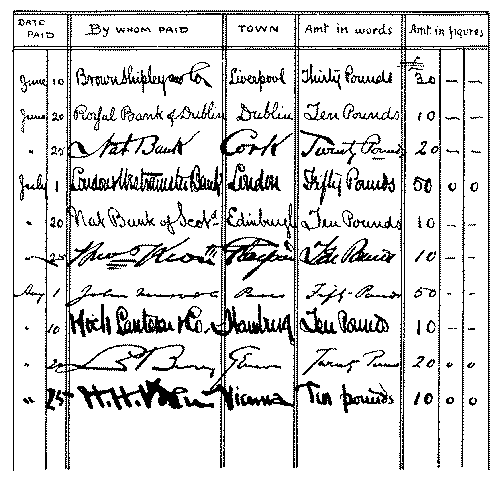 DATE PAID BY WHOM PAID TOWN Amt in words Amt in figures
June 10 Brown Shipley & Co Liverpool Thirty Pounds £ 30 — —
June 20 Royal Bank of Dublin Dublin Ten Pounds 10 — —
" 25 Nat Bank Cork Twenty Pounds 20 — —
July 1 London & Westminster Bank London Fifty Pounds 50 0 0
" 20 Nat Bank of Scotd Edinburgh Ten Pounds 10 — —
" 25 Ten Pounds 10 — —
Aug 1 John Fifty Pounds 50 — —
" 10 & Co. Hamburg Ten Pounds 10 — —
" Twenty 20 0 0
" 25 H. H. Vienna Ten pounds 10 0 0